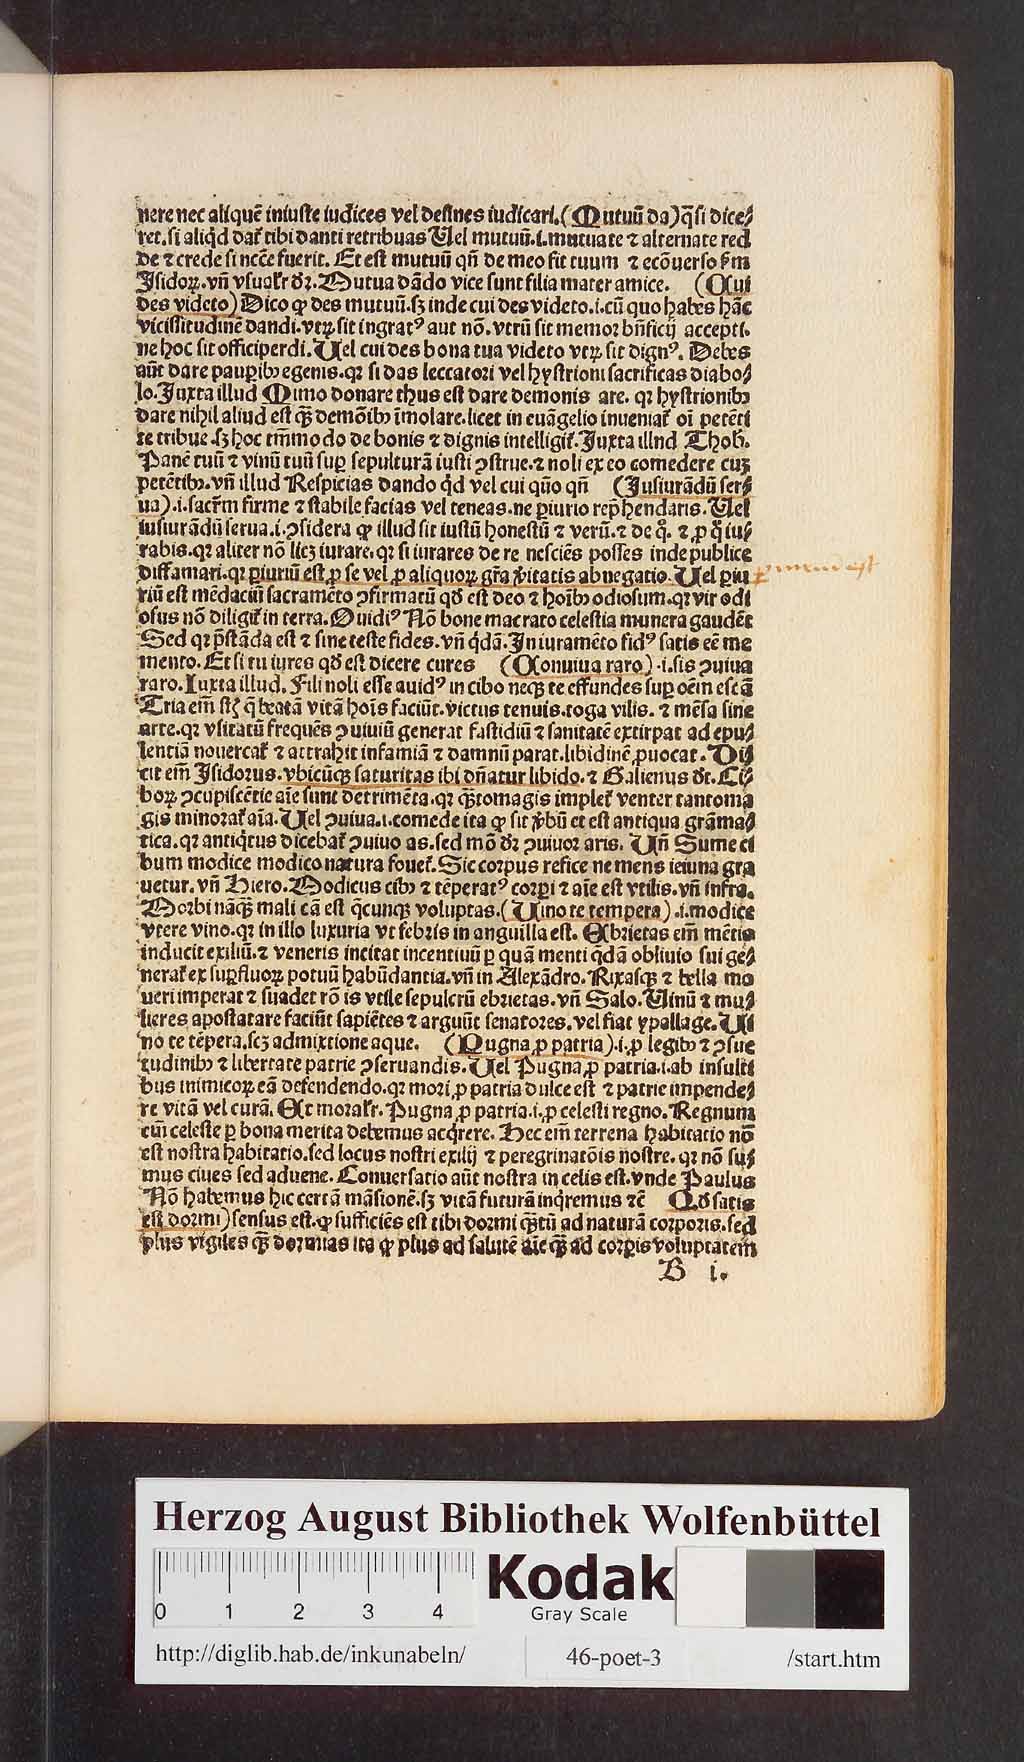 nere nec aliquē iniuste iudices vel desines iudicari. (Mutuū da) q̄si dice⸗
ret. si aliqd dat̄ tibi danti retribuas Uel mutuū. i. mutuate ⁊ alternate red
de ⁊ crede si ncc̄e fuerit. Et est mutuū qn̄ de meo fit tuum ⁊ ecōuerso s̄m
Isidoꝝ. vn̄ vsualr̄ dr̄. Mutua dādo vice sunt filia mater amice. (Cui
des videto) Dico ꝙ des mutuū. sꝫ inde cui des videto. i. cū quo habes hāc
vicissitudinē dandi. vtꝝ sit ingratꝰ aut nō. vtrū sit memor bn̄ficij accepti.
ne hoc sit officiperdi. Uel cui des bona tua videto vtꝝ sit dignꝰ. Debes
aūt dare pauꝑibꝫ egenis. qꝛ si das leccatori vel hystrioni sacrificas diabo⸗
lo. Iuxta illud Mimo donare thus est dare demonis are. qꝛ hystrionibꝫ
dare nihil aliud est qꝫ̄ demōibꝫ īmolare. licet in euāgelio inueniat̄ oī petēti
te tribue. sꝫ hoc tm̄modo de bonis ⁊ dignis intelligit̄. Iuxta illnd Thob.
Panē tuū ⁊ vinū tuū suꝑ sepulturā iusti ꝯstrue. ⁊ noli ex eo comedere cuꝫ
petētibꝫ. vn̄ illud Respicias dando qd vel cui quō qn̄ (Iusiurādū ser⸗
ua). i. sacrm̄ firme ⁊ stabile facias vel teneas. ne ꝑiurio rep̄hendaris. Uel
iusiurādū serua. i. ꝯsidera ꝙ illud sit iustū honestū ⁊ verū. ⁊ de q̊. ⁊ ꝓ q̊ iu⸗
rabis. qꝛ aliter nō licꝫ iurare. qꝛ si iurares de re nesciēs posses inde publice
diffamari. qꝛ ꝑiuriū est ꝓ se vel ꝓ aliquoꝝ gr̄a v̄itatis abuegatio. Uel ꝑiu
riū est mēdaciū sacramēto ꝯfirmatū qd̄ est deo ⁊ hoībꝫ odiosum. qꝛ vir odi
osus nō diligit̄ in terra. Ouidiꝰ Nō bone macrato celestia munera gaudēt
Sed qꝛ p̄stāda est ⁊ sine teste fides. vn̄ qdā. In iuramēto fidꝰ satis eē me
mento. Et si tu iures qd̄ est dicere cures (Conuiua raro). i. sis ꝯuiua
raro. Iuxta illud. Fili noli esse auidꝰ in cibo necqꝫ te effundes suꝑ oēm escā
Tria em̄ st̄ q̄ beatā vitā hoīs faciūt. victus tenuis. toga vilis. ⁊ mēsa sine
arte. qꝛ vsitatū frequēs ꝯuiuiū generat fastidiū ⁊ sanitatē extirpat ad epu⸗
lentiā nouercat̄ ⁊ attrahit infamiā ⁊ damnū parat. libidinē ꝓuocat. Di⸗
cit em̄ Isidorus. vbicūqꝫ saturitas ibi dn̄atur libido. ⁊ Galienus dt. Ci⸗
boꝝ ꝯcupiscētie aīe sunt detrimēta. qꝛ qꝫ̄tomagis implet̄ venter tantoma
gis minorat̄ aīa. Uel ꝯuiua. i. comede ita ꝙ sit v̄bū et est antiqua grāma⸗
tica. qꝛ antiqtus dicebat̄ ꝯuiuo as. sed mō dr̄ ꝯuiuor aris. Un̄ Sume ci
bum modice modico natura fouet̄. Sic corpus refice ne mens ieiuna gra
uetur. vn̄ Hiero. Modicus cibꝫ ⁊ tēperatꝰ corꝑi ⁊ aīe est vtilis. vn̄ infra.
Morbi nāqꝫ mali cā est qcunqꝫ voluptas. (Uino te tempera). i. modice
vtere vino. qꝛ in illo luxuria vt febris in anguilla est. Ebrietas em̄ mētis
inducit exiliū. ⁊ veneris incitat incentiuū ꝑ quā menti qdā obliuio sui ge⸗
nerat̄ ex suꝑfluoꝝ potuū habūdantia. vn̄ in Alexādro. Rixasqꝫ ⁊ bella mo
ueri imperat ⁊ suadet rō is vtile sepulcrū ebrietas. vn̄ Salo. Uinū ⁊ mu⸗
lieres apostatare faciūt sapiētes ⁊ arguūt senatores. vel fiat ypallage. Ui
no te tēpera. scꝫ admixtione aque. (Pugna ꝓ patria). i. ꝓ legibꝫ ⁊ ꝯsue
tudinibꝫ ⁊ libertate patrie ꝯseruandis. Uel Pugna ꝓ patria. i. ab insulti
bus inimicoꝝ eā defendendo. qꝛ mori ꝓ patria dulce est ⁊ patrie impende⸗
re vitā vel curā. Et moralr̄. Pugna ꝓ patria. i. ꝓ celesti regno. Regnum
em̄ celeste ꝑ bona merita debemus acqrere. Hec em̄ terrena habitatio nō
est nostra habitatio. sed locus nostri exilij ⁊ peregrinatōis nostre. qꝛ nō su⸗
mus ciues sed aduene. Conuersatio aūt nostra in celis est. vnde Paulus
Nō habemus hic certā māsionē. sꝫ vitā futurā inqremus ⁊c̄ Qd̄ satis
est dormi) sensus est. ꝙ sufficiēs est tibi dormi qꝫ̄tū ad naturā corporis. sed
plus vigiles qꝫ̄ dormias ita ꝙ plus ad salutē aīe qꝫ̄ ad corꝑis voluptatem
B i.
ꝑiurium est
Herzog August Bibliothek Wolfenbüttel
0 1 2 3 4
Kodak
Gray Scale
http://diglib.hab.de/inkunabeln/ 46-poet-3 /start.htm